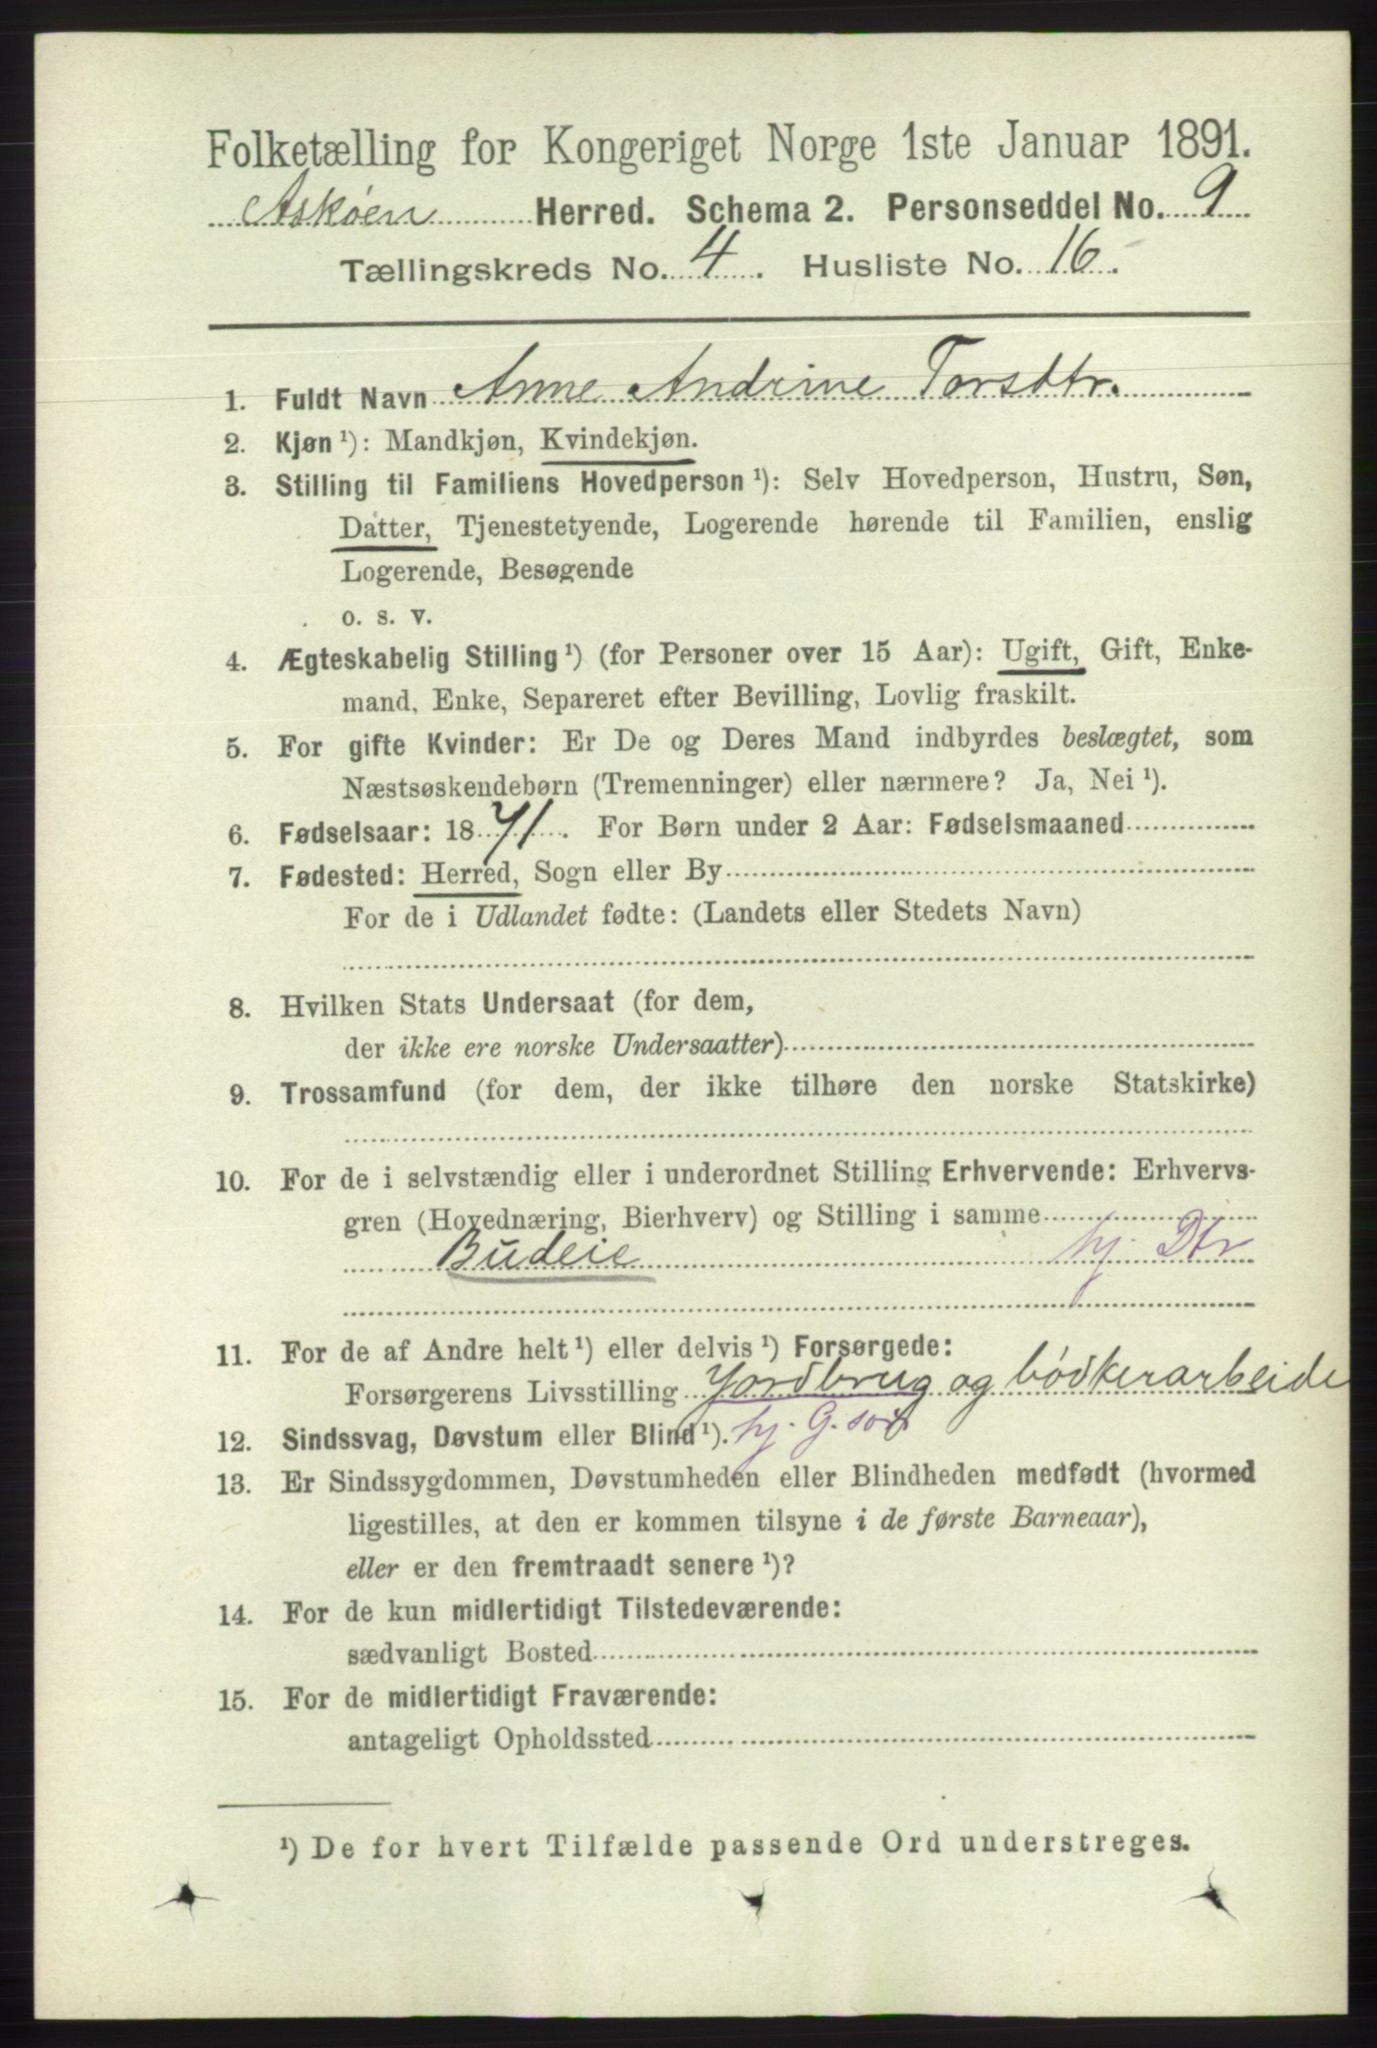 Folketælling for Kongeriget Norge 1ste Januar 1891.
Askøen Herred. Schema 2. Personseddel No. 9
Tællingskreds No. 4. Husliste No. 16.
1. Fuldt Navn Anne Andrine Torsdtr.
2. Kjøn ¹): Mandkjøn, Kvindekjøn.
3. Stilling til Familiens Hovedperson ¹): Selv Hovedperson, Hustru, Søn,
Datter, Tjenestetyende, Logerende hørende til Familien, enslig
Logerende, Besøgende
o. s. v.
4. Ægteskabelig Stilling ¹) (for Personer over 15 Aar): Ugift, Gift, Enke-
mand, Enke, Separeret efter Bevilling, Lovlig fraskilt.
5. For gifte Kvinder: Er De og Deres Mand indbyrdes beslægtet, som
Næstsøskendebørn (Tremenninger) eller nærmere? Ja, Nei ¹).
6. Fødselsaar: 1871. For Børn under 2 Aar: Fødselsmaaned
7. Fødested: Herred, Sogn eller By
For de i Udlandet fødte: (Landets eller Stedets Navn)
8. Hvilken Stats Undersaat (for dem,
der ikke ere norske Undersaatter)
9. Trossamfund (for dem, der ikke tilhøre den norske Statskirke)
10. For de i selvstændig eller i underordnet Stilling Erhvervende: Erhvervs-
gren (Hovednæring, Bierhverv) og Stilling i samme
Budeie hj. Dtr
11. For de af Andre helt ¹) eller delvis ¹) Forsørgede:
Forsørgerens Livsstilling Jordbrug og bødkerarbeide
12. Sindssvag, Døvstum eller Blind ¹). hj. G.
13. Er Sindssygdommen, Døvstumheden eller Blindheden medfødt (hvormed
ligestilles, at den er kommen tilsyne i de første Barneaar),
eller er den fremtraadt senere ¹)?
14. For de kun midlertidigt Tilstedeværende:
sædvanligt Bosted
15. For de midlertidigt Fraværende:
antageligt Opholdssted
¹) De for hvert Tilfælde passende Ord understreges.